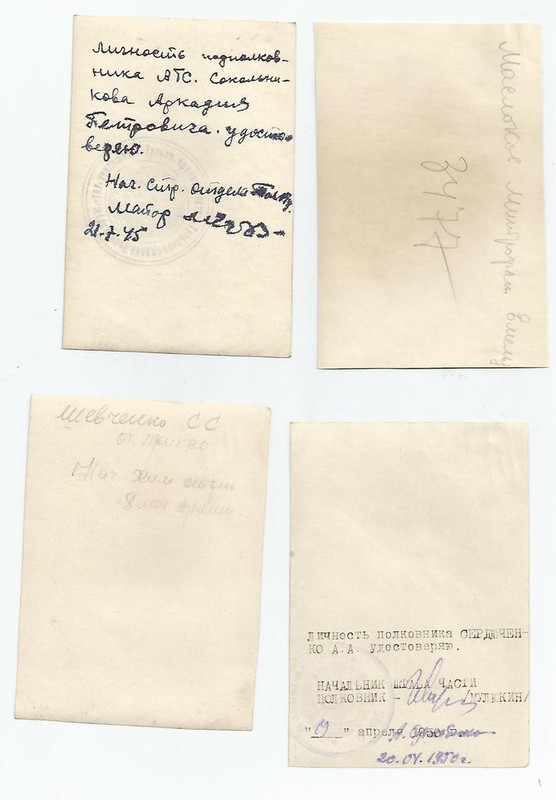 Личность подполков-
ника АТС. Сокольни-
кова Аркадия
Петровича. удосто-
веряю.
Нач. стр. отдела
Майор
21-7-45
Маслоков Митрофан Емель
3477
Шевченко СС
Нач хим
ЛИЧНОСТЬ ПОЛКОВНИКА СЕРДЮЧЕН-
КО А.А. УДОСТОВЕРЯЮ.
НАЧАЛЬНИК ШТАБА ЧАСТИ
ПОЛКОВНИК - /МУЛЮКИН/
" " апреля 1950
20.04.1950г.